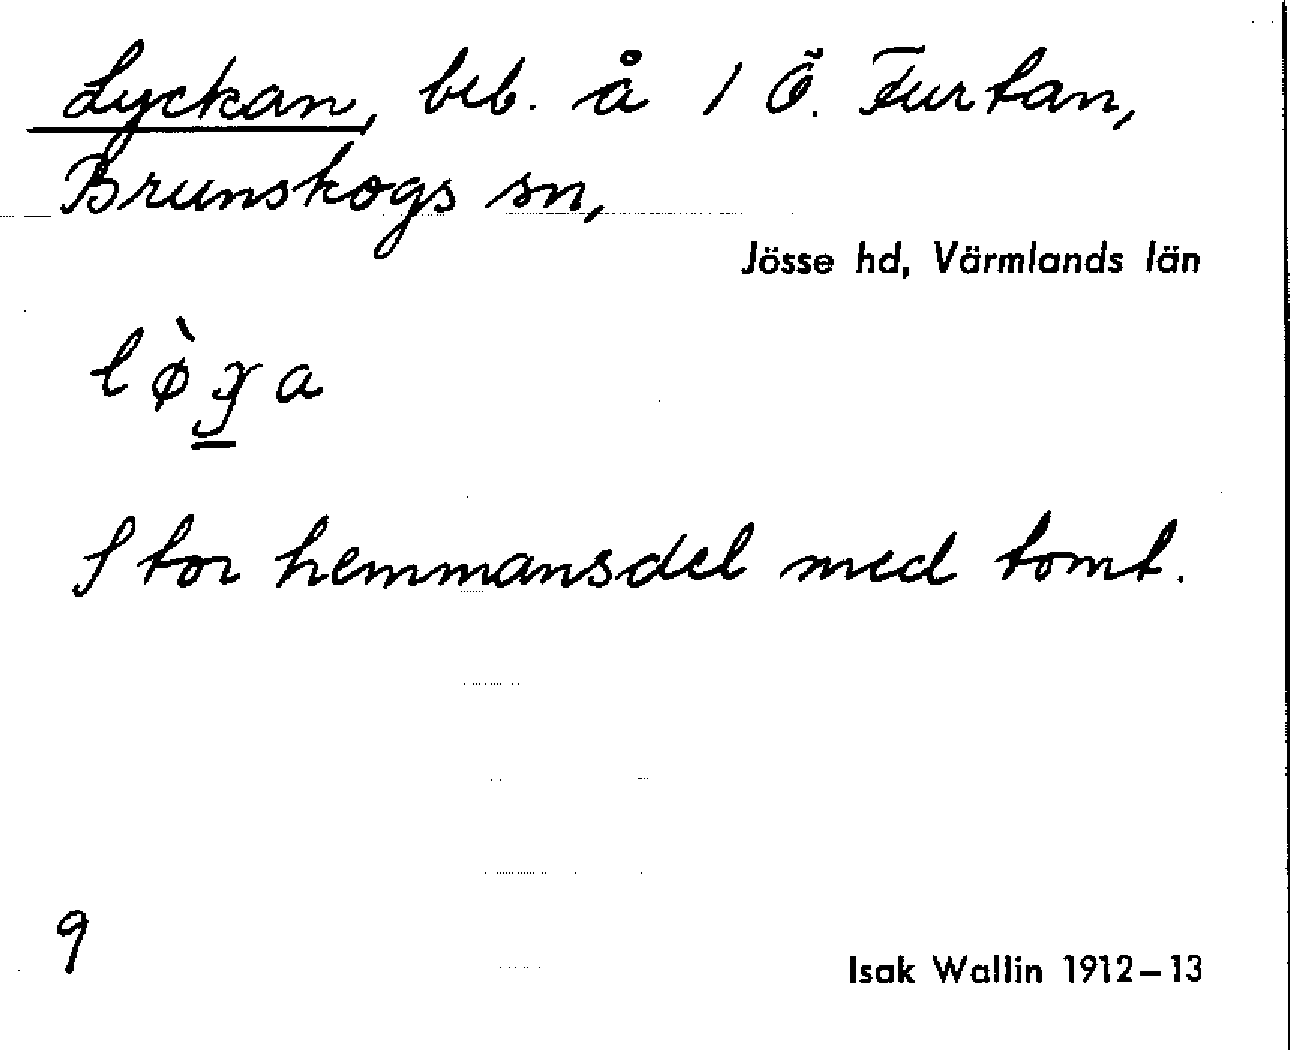 Lyckan, beb. å 1 Ö. Furtan,
Brunskogs sn,
Jösse hd, Värmlands län
Stor hemmansdel med tomt.
9
Isak Wallin 1912–13